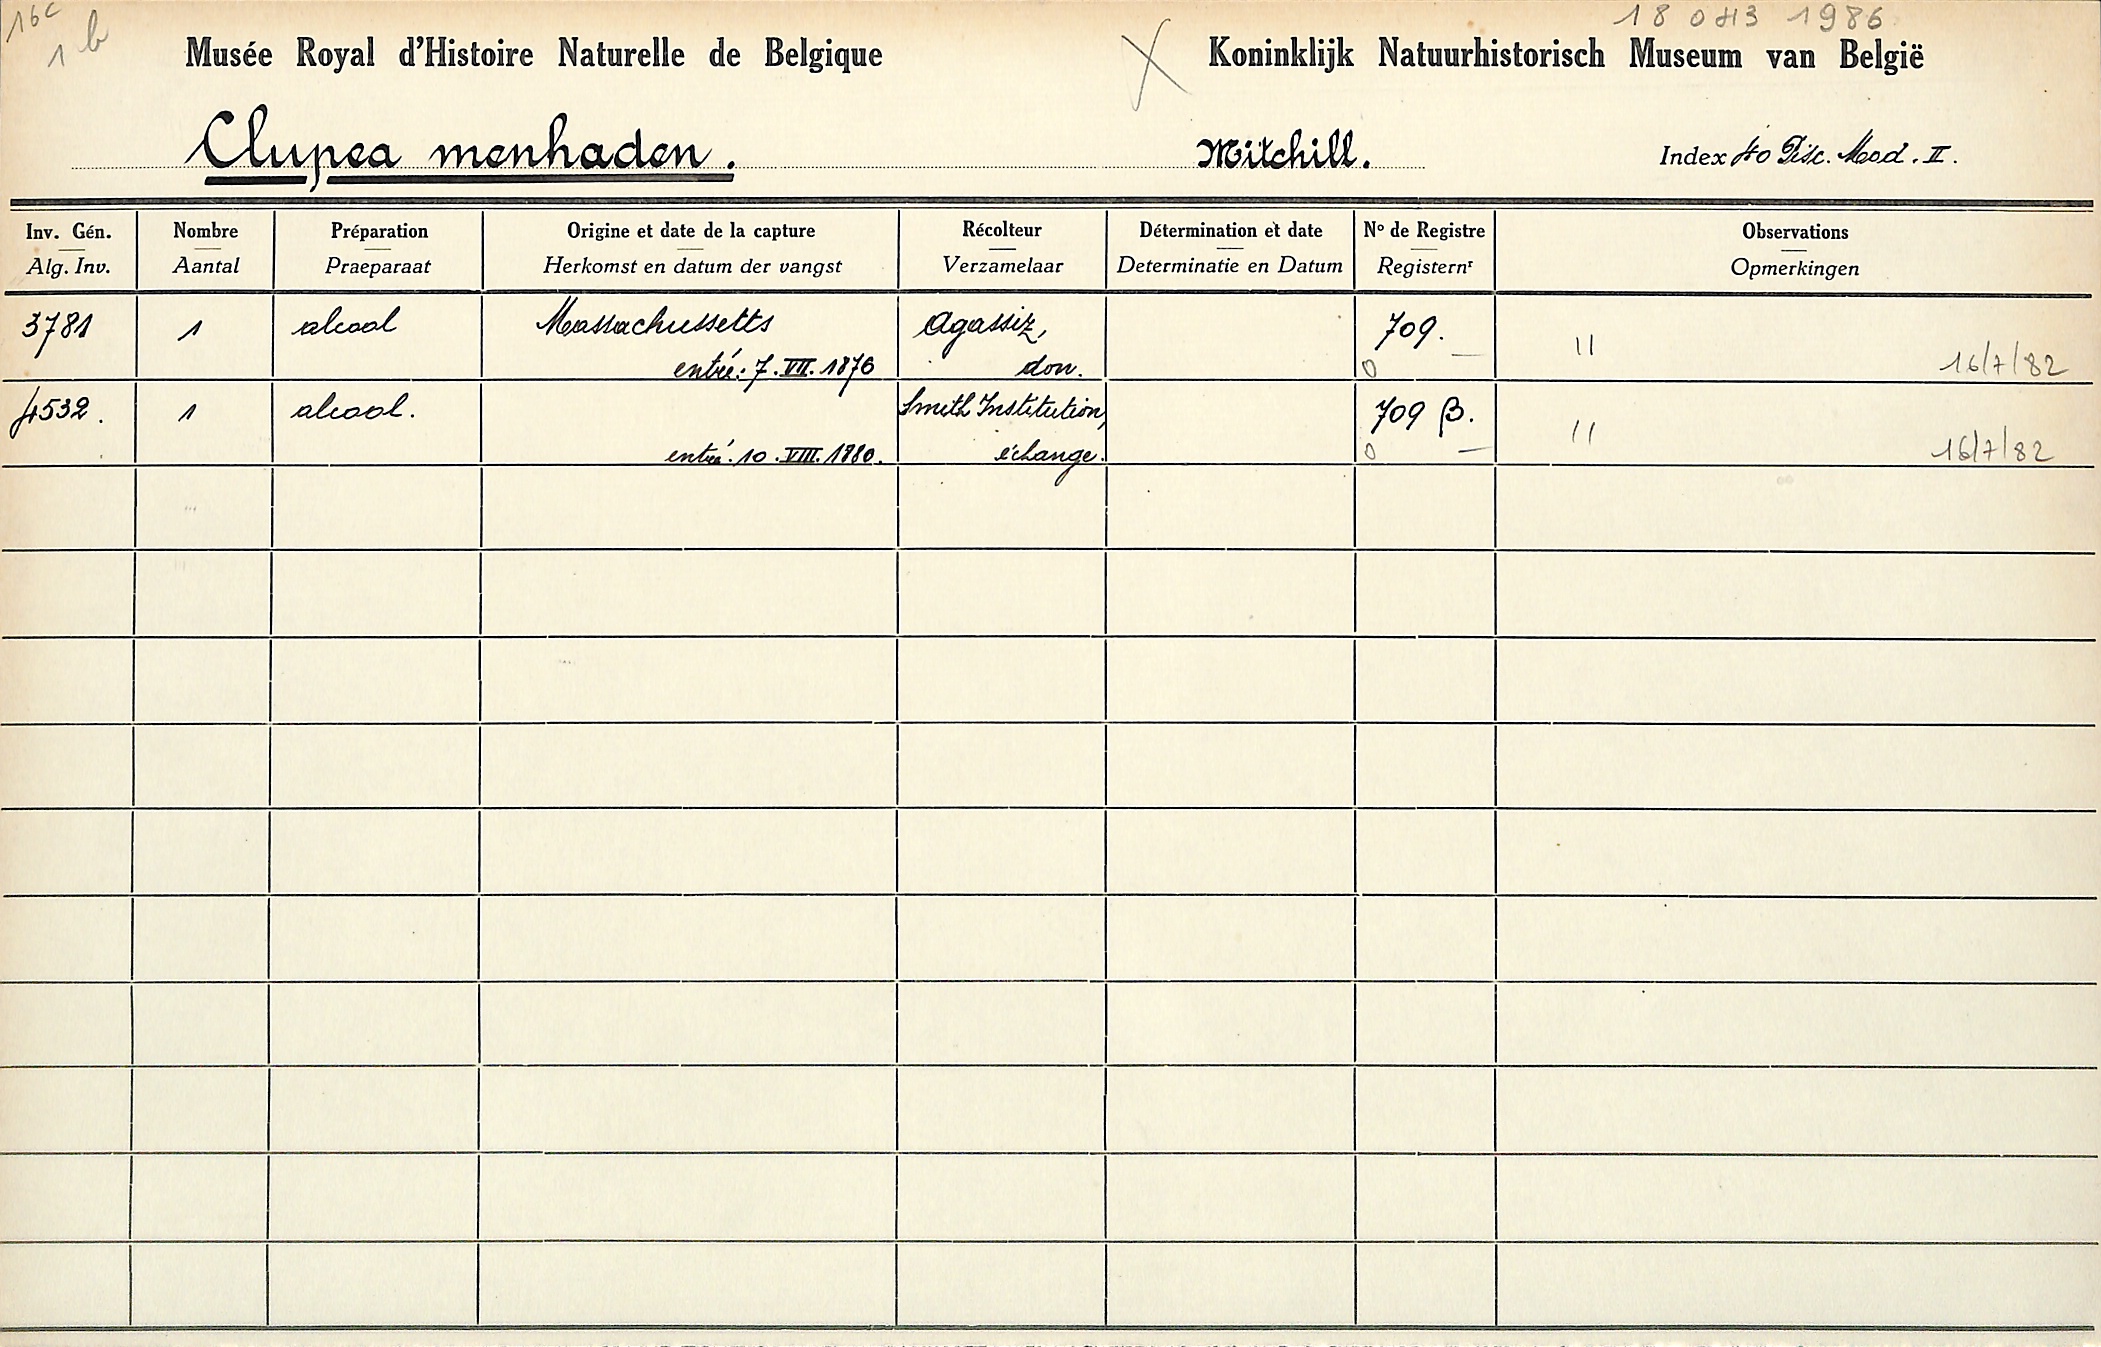 16c
1 b
18 043 1986
Musée Royal d'Histoire Naturelle de Belgique Koninklijk Natuurhistorisch Museum van België
Clupea menhaden. Mitchill. Index 40 Pisc. Mod. II.
Inv. Gén. Nombre Préparation Origine et date de la capture Récolteur Détermination et date Nº de Registre Observations
Alg. Inv. Aantal Praeparaat Herkomst en datum der vangst Verzamelaar Determinatie en Datum Registernʳ Opmerkingen
3781 1 alcool Massachussetts Agassiz, 709. "
entré: 7.VII.1876 don. 0 16/7/82
4532. 1 alcool. Smith Institution, 709 β. "
entré: 10.VIII.1880. échange. 0 16/7/82